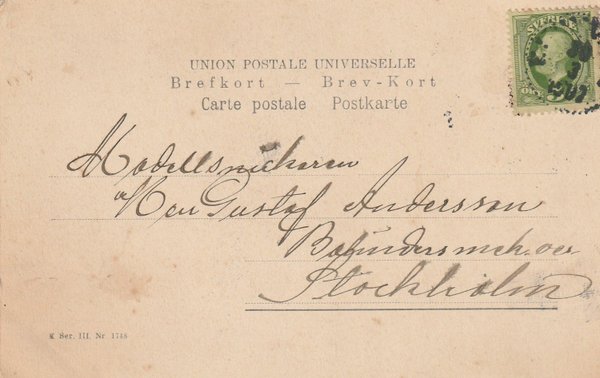 UNION POSTALE UNIVERSELLE
Brefkort — Brev-Kort
Carte postale Postkarte
SVERIGE
Modellsnickaren
Herr Gustaf Andersson
Stockholm
Ser. III. Nr. 1748